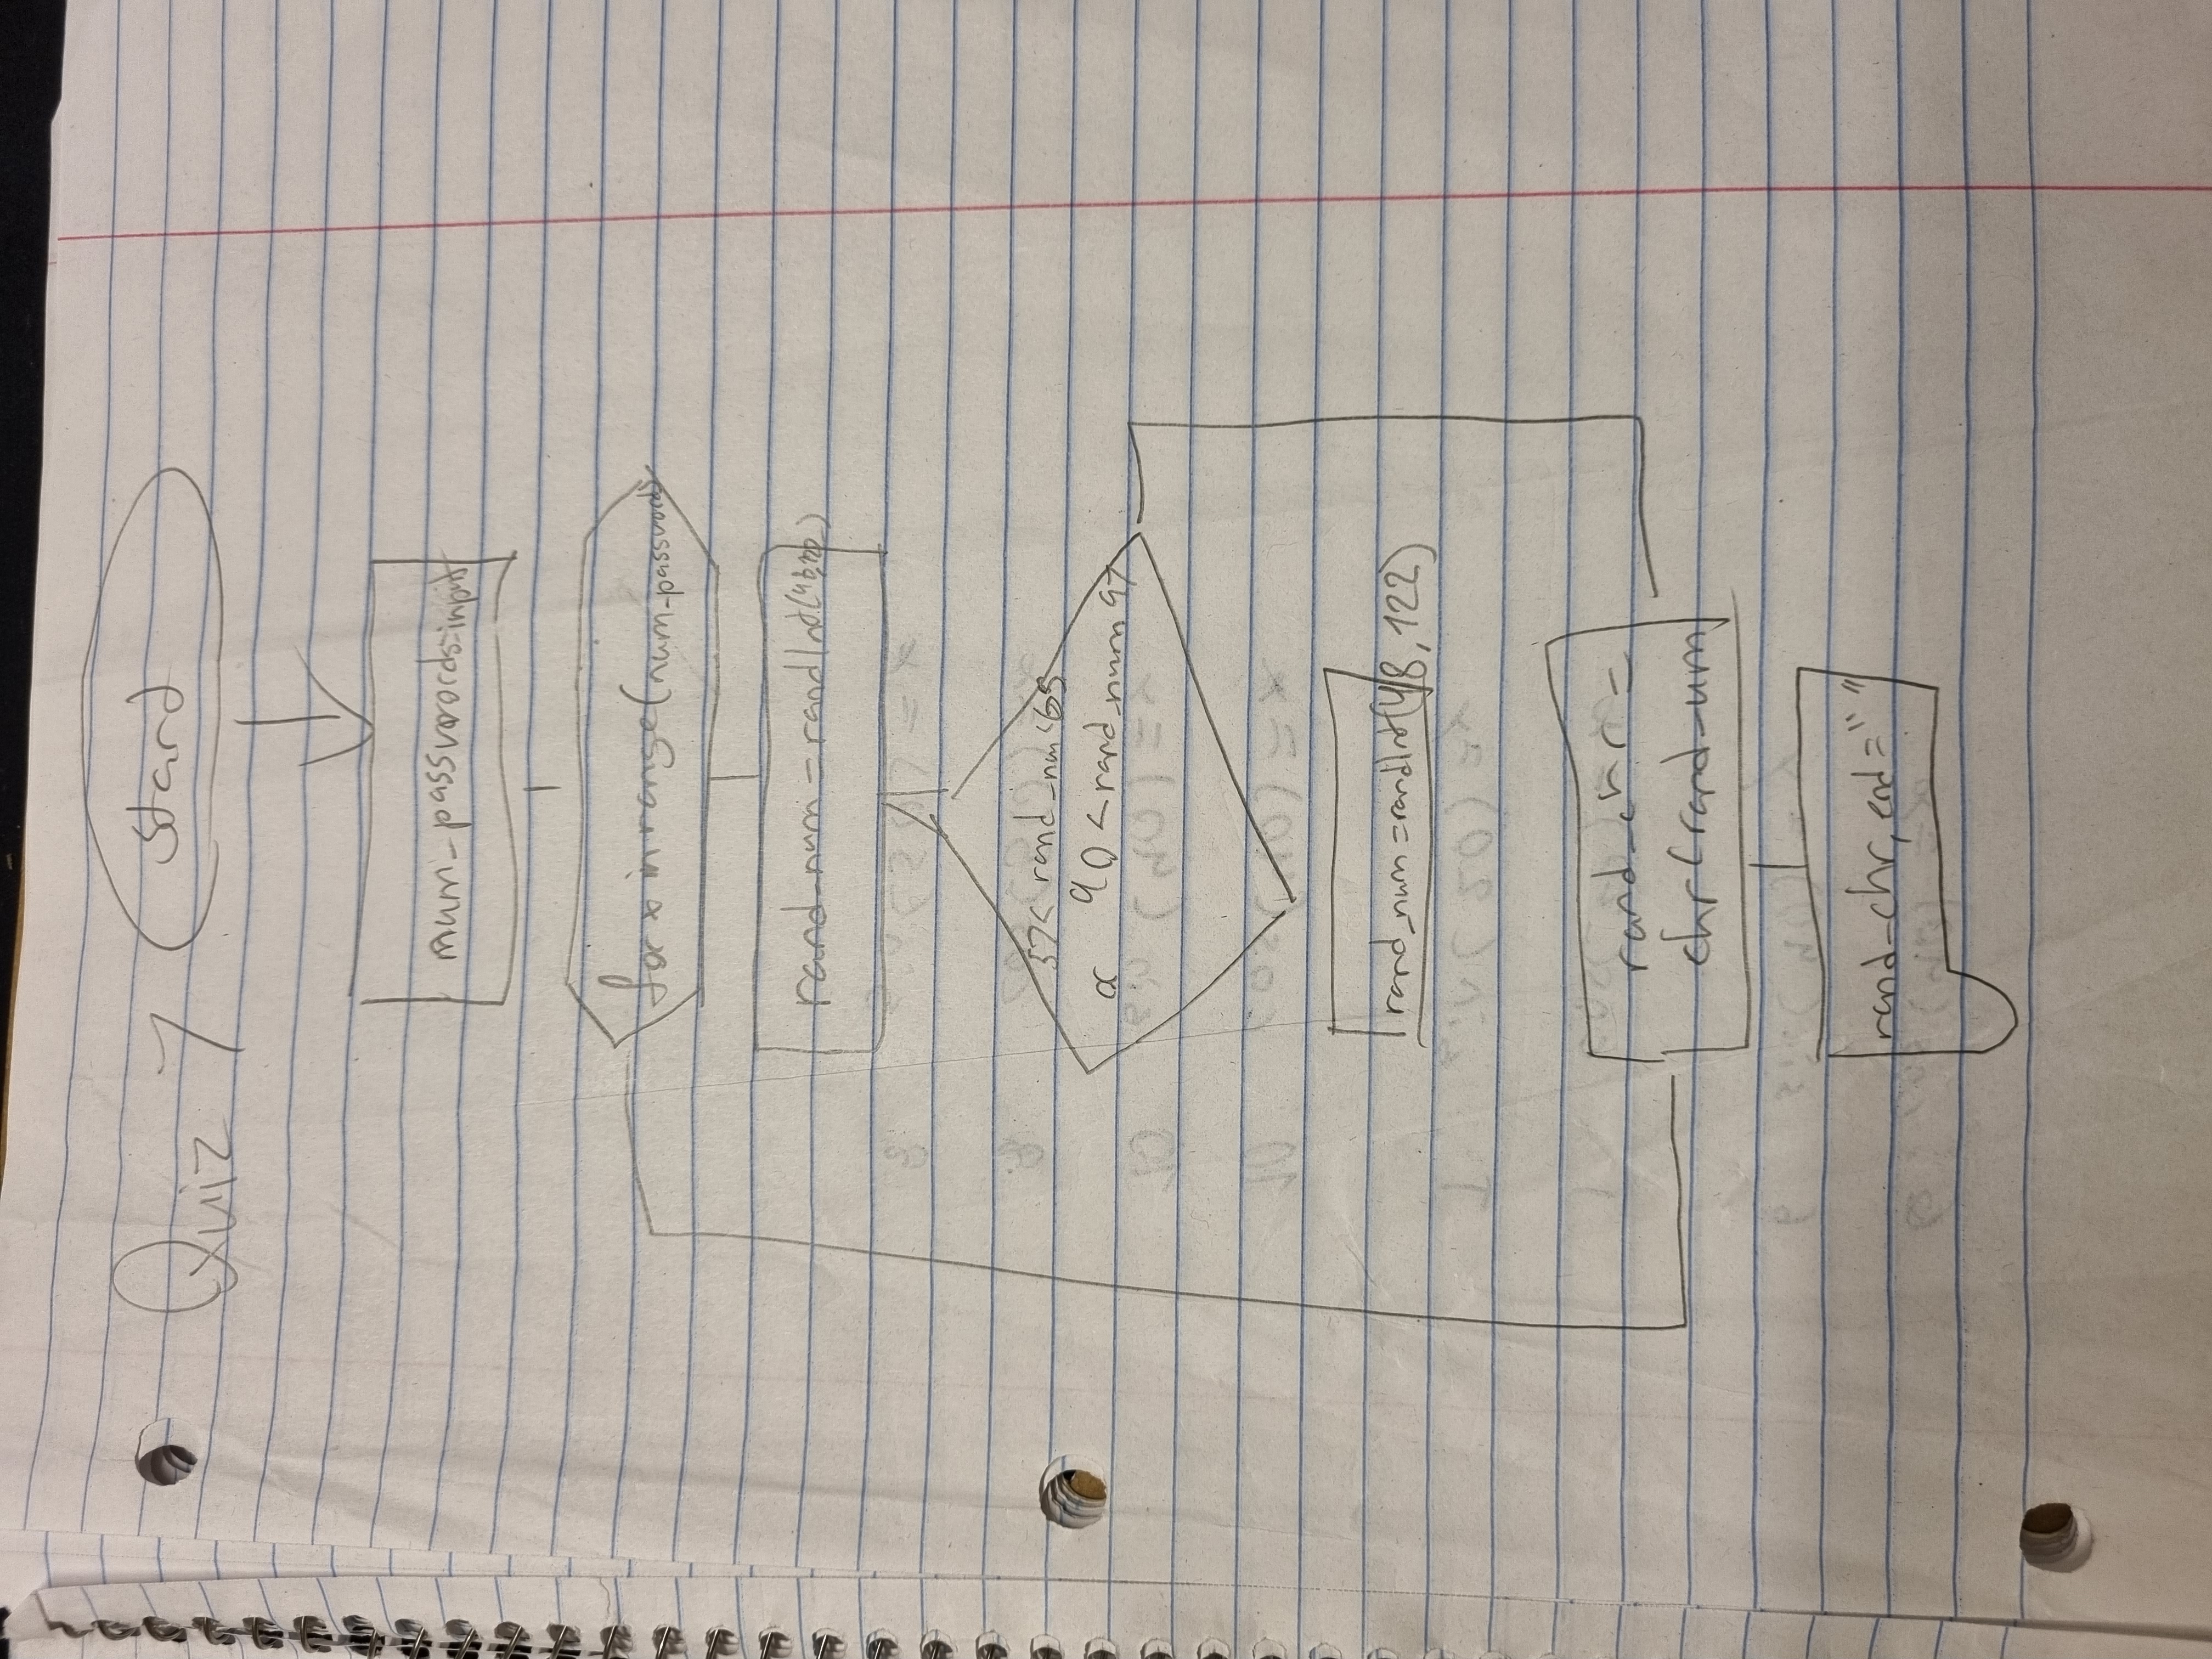 Quiz 7
Start
num_passwords=input
for x in range(num_password)
rand_num = randInt(48,122)
57< rand_num <65
or 90 <rand_num 97
rand_num =randInt(48, 122)
rand_chr =
chr(rand_um
rand_chr, end=" "